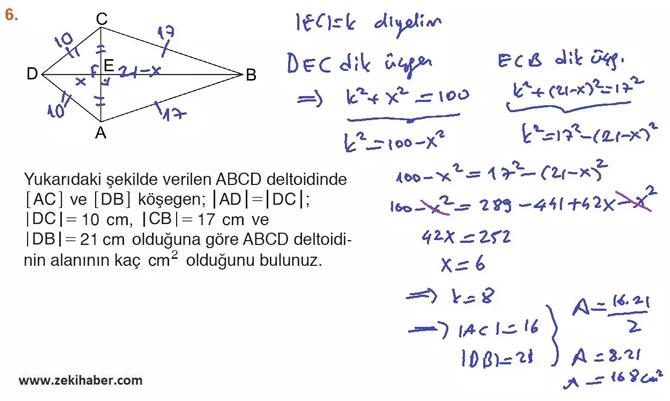 6.
C
10
17
D
x
E
21-x
B
10
17
A
Yukarıdaki şekilde verilen ABCD deltoidinde
[AC] ve [DB] köşegen; |AD|=|DC|;
|DC|= 10 cm, |CB|= 17 cm ve
|DB|= 21 cm olduğuna göre ABCD deltoidi-
nin alanının kaç cm² olduğunu bulunuz.
|EC|=k diyelim
DEC dik üçgen
⇒ k²+x²=100
k²=100-x²
ECB dik üçg.
k²+(21-x)²=17²
k²=17²-(21-x)²
100-x²=17²-(21-x)²
100-x²=289-441+42x-x²
42x=252
x=6
⇒ k=8
⇒ |AC|=16
|DB|=21
A=16.21/2
A=8.21
A=168cm²
www.zekihaber.com